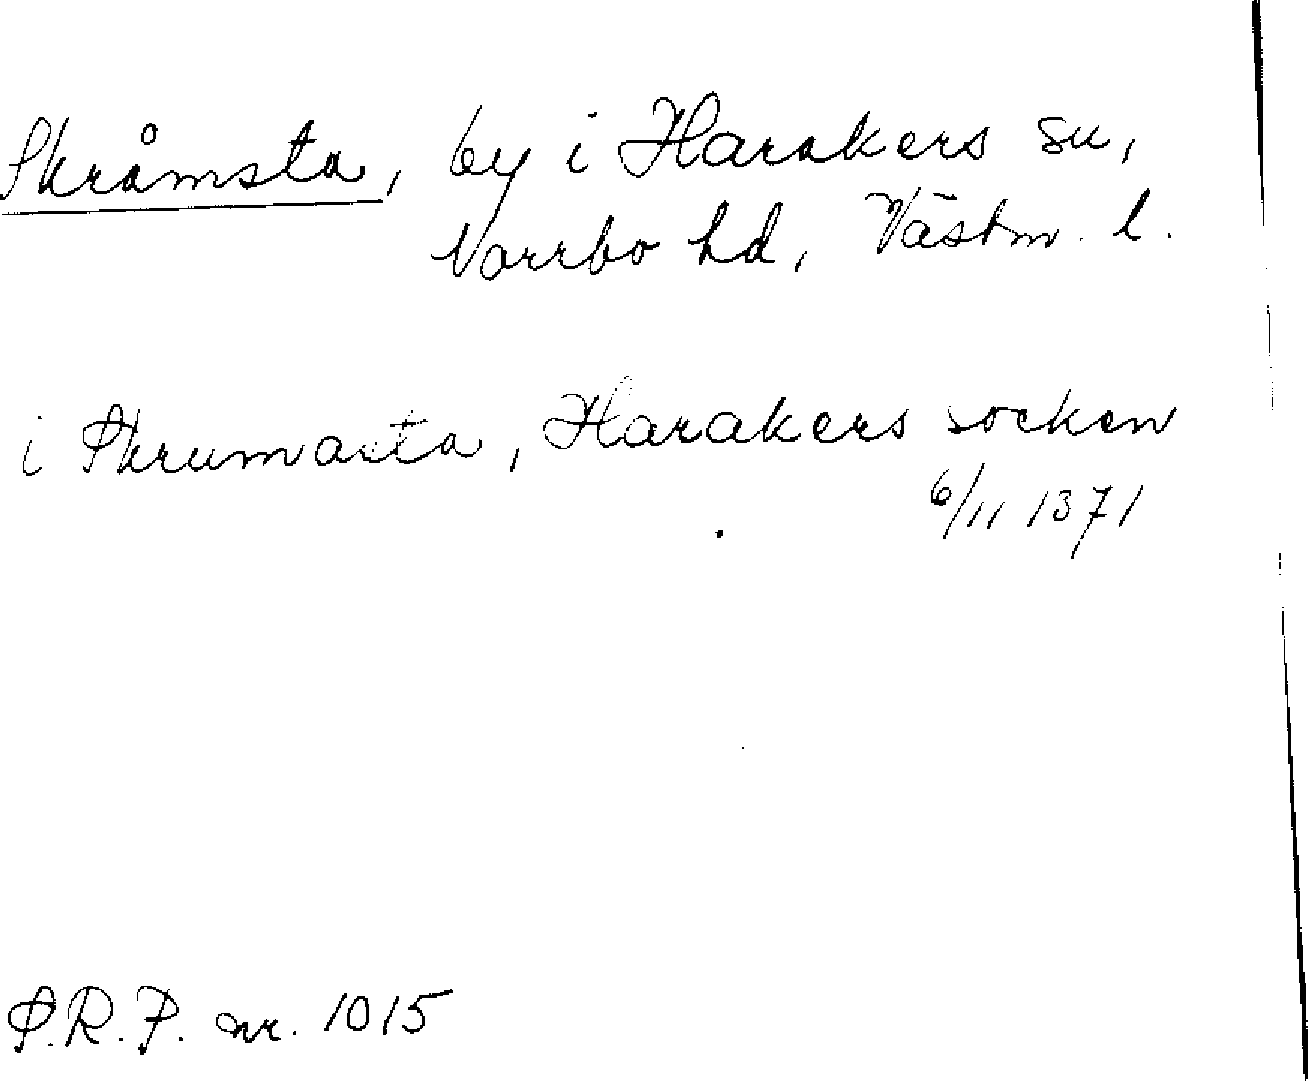 Skråmsta, by i Harakers sn,
Norrbo hd, Västm. l.
i Skrumasta, Harakers socken
6/11 1371
S.R.P. nr. 1015